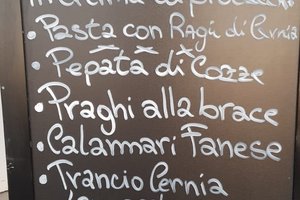 • Pasta con Ragù di Cernia
• Pepata di Cozze
• Praghi alla brace
• Calamari Fanese
• Trancio Cernia